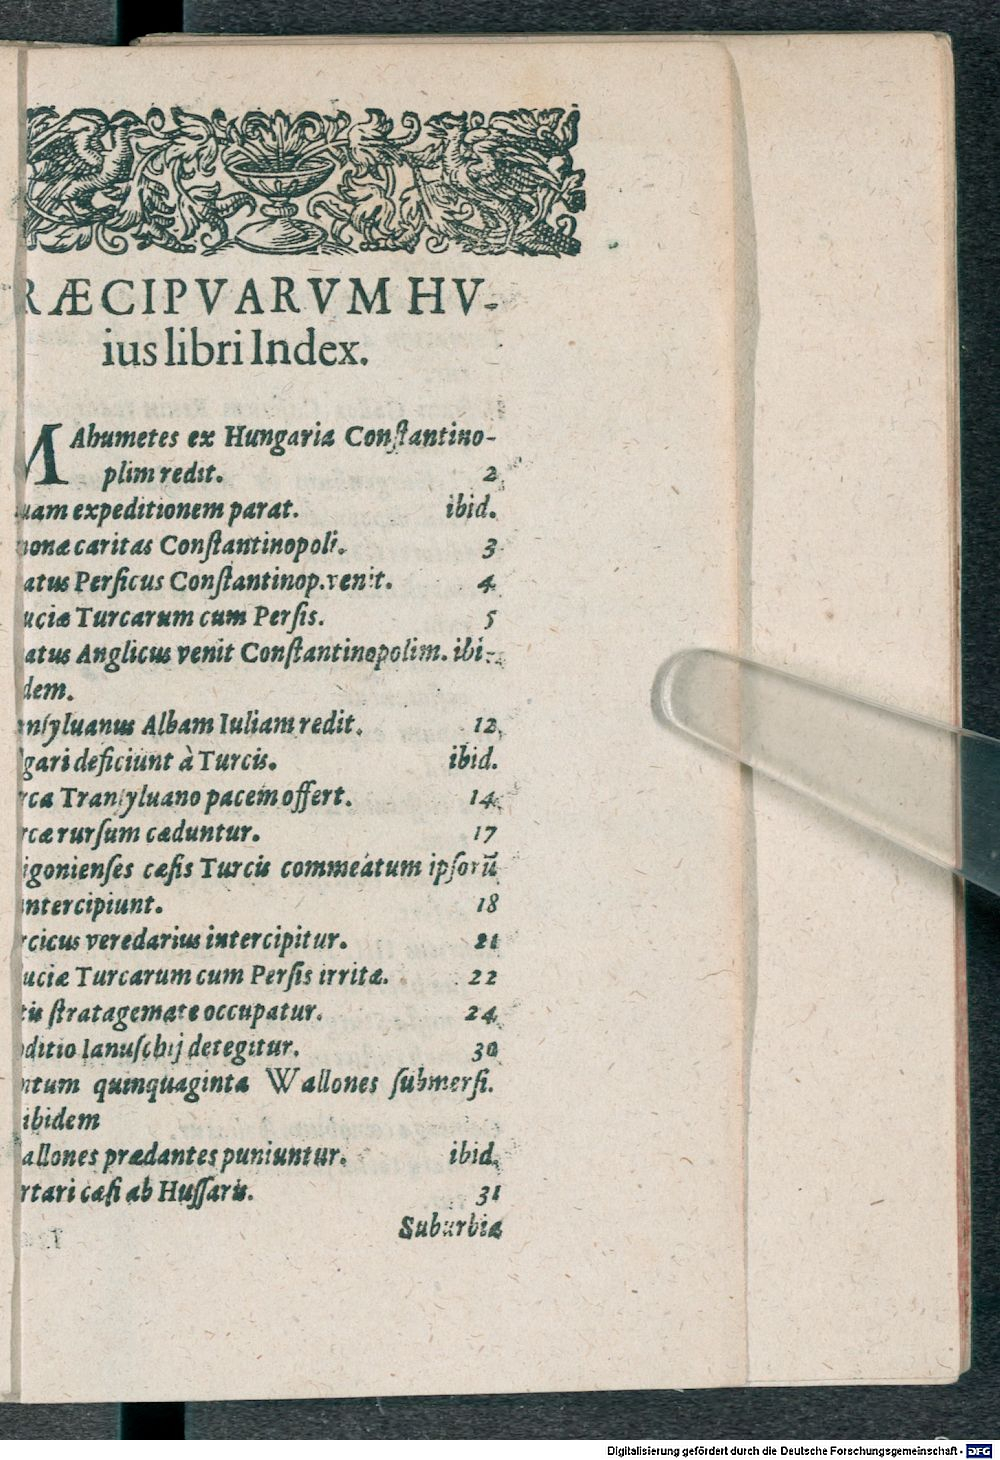 RÆCIPVARVM HV-
ius libri Index.
MAhumetes ex Hungaria Constantino-
plim redit. 2
uam expeditionem parat. ibid.
nonæ caritas Constantinopoli. 3
atus Persicus Constantinop. venit. 4
uciæ Turcarum cum Persis. 5
atus Anglicus venit Constantinopolim. ibi-
dem.
nsyluanus Albam Iuliam redit. 12
gari deficiunt à Turcis. ibid.
rca Transyluano pacem offert. 14
rcæ rursum cæduntur. 17
igonienses cæsis Turcis commeatum ipsorū
intercipiunt. 18
rcicus veredarius intercipitur. 21
uciæ Turcarum cum Persis irritæ. 22
tis stratagemate occupatur. 24
ditio Ianuschij detegitur. 30
ntum quinquaginta Wallones submersi.
ibidem
allones prædantes puniuntur. ibid.
rtari cæsi ab Hussaris. 31
Suburbia
Digitalisierung gefördert durch die Deutsche Forschungsgemeinschaft - DFG